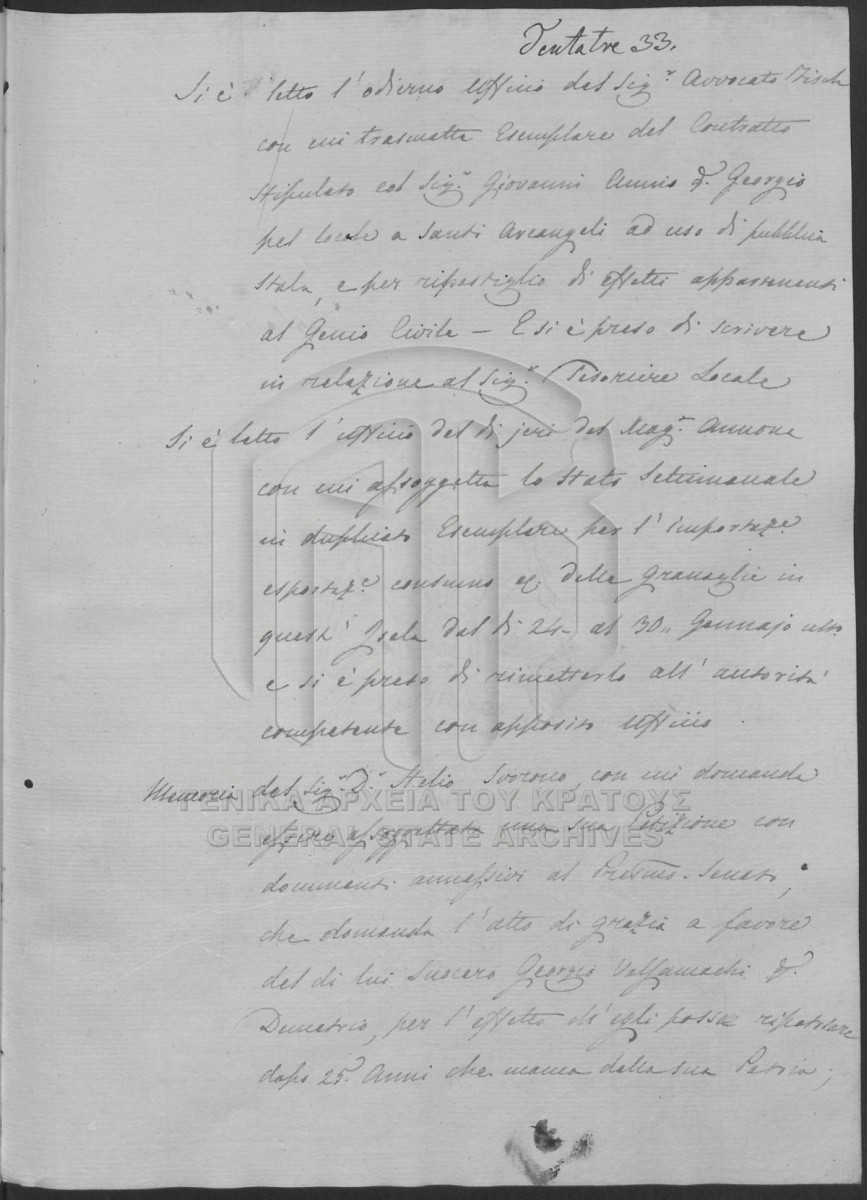 Trentatre 33.
Si è letto l'odierno Uffizio del Sigr. Avvocato
con cui trasmette Esemplare del Contratto
stipulato col Sigr. Giovanni Annio qm. Georgio
pel locale a Santi Arcangeli ad uso di pubblica
Stala, e per ripostiglio di effetti appartenenti
al Genio Civile — E si è preso di scrivere
in relazione al Sigr. Tesoriere Locale
Si è letto l'uffizio del dì jeri del Magr. Annona
con cui assoggetta lo stato Settimanale
in duplicato Esemplare per l'importaze.
esportaze. consumo &. delle granaglie in
quest' Isola dal dì 24 — al 30,, Gennajo ulto.
e si è preso di rimetterlo all' autorità
competente con apposito Uffizio.
Memoria del Sigr. Dr. Stelio Svorono, con cui domanda
essere assoggettata una sua Petizione con
documenti annessivi al Presmo. Senato,
che domanda l'atto di grazia a favore
del di lui Suocero Georgio Valsamachi qm.
Demetrio, per l'effetto ch'egli possa ripatriare
dopo 25. Anni che manca dalla sua Patria;
ΓΕΝΙΚΑ ΑΡΧΕΙΑ ΤΟΥ ΚΡΑΤΟΥΣ
GENERAL STATE ARCHIVES